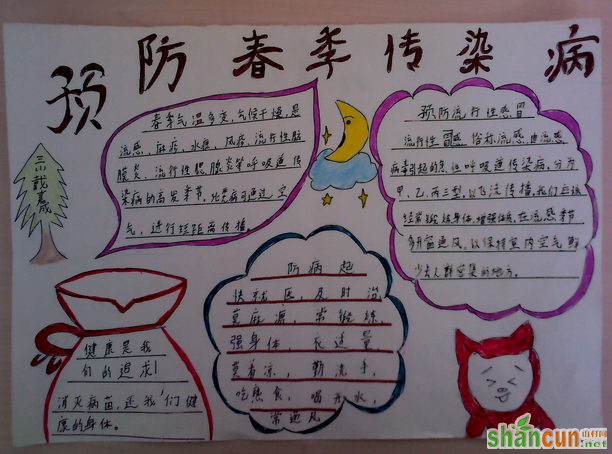 预防春季传染病
春季气温多变，气候干燥，是
流感、麻疹、水痘、风疹、流行性脑
膜炎、流行性腮腺炎等呼吸道传
染病的高发季节，此类病可通过空
气，进行短距离传播。
预防流行性感冒
流行性感冒俗称流感，由流感
病毒引起的急性呼吸道传染病，分为
甲、乙、丙三型，以飞沫传播。我们应该
经常锻炼身体，增强体质，在流感季节
多开窗通风，以保持室内空气新
少去人群密集的地方。
防病起
快就医，及时治，
莫麻源，常锻练，
强身体，衣适量，
莫着凉，勤洗手，
吃熟食，喝开水，
常通风
健康是我
们的追求！
消灭病菌，还我们健
康的身体。
shancun 山村网
.net